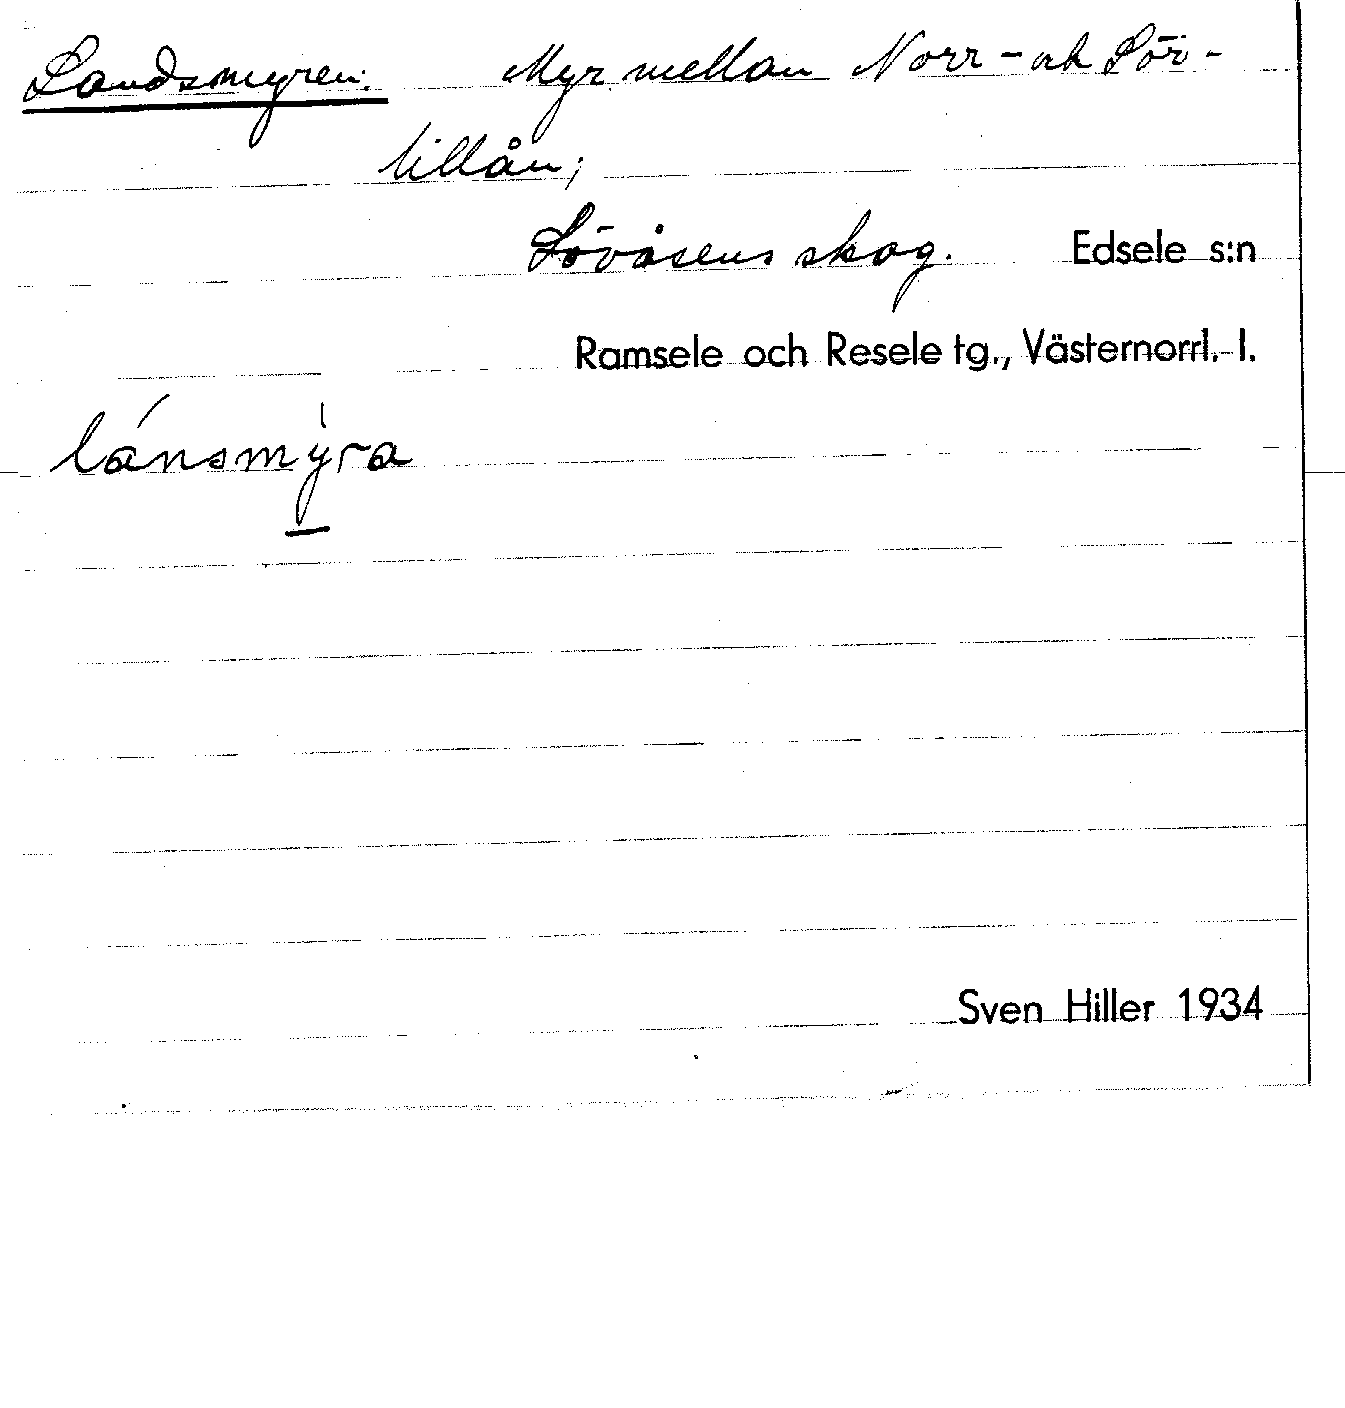 Landsmyren: Myr mellan Norr- och Sör-
lillån;
Lövåsens skog. Edsele s:n
Ramsele och Resele tg., Västernorrl. l.
lánsmýra
Sven Hiller 1934